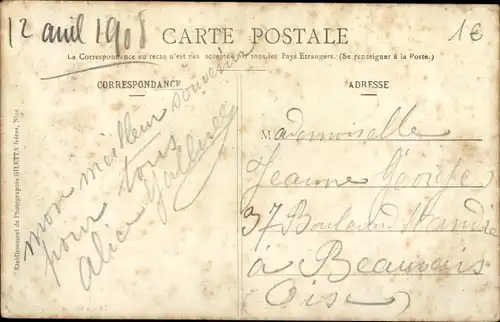 12 avril 1908
CARTE POSTALE
1€
La Correspondance au recto n'est pas acceptée par tous les Pays Etrangers. (Se renseigner à la Poste.)
CORRESPONDANCE
ADRESSE
mon meilleur souvenir
pour tous
Alice
Mademoiselle
Jeanne
37 Boulevard
à Beauvais
(Oise)
Etablissement de Photographie GILETTA frères, Nice